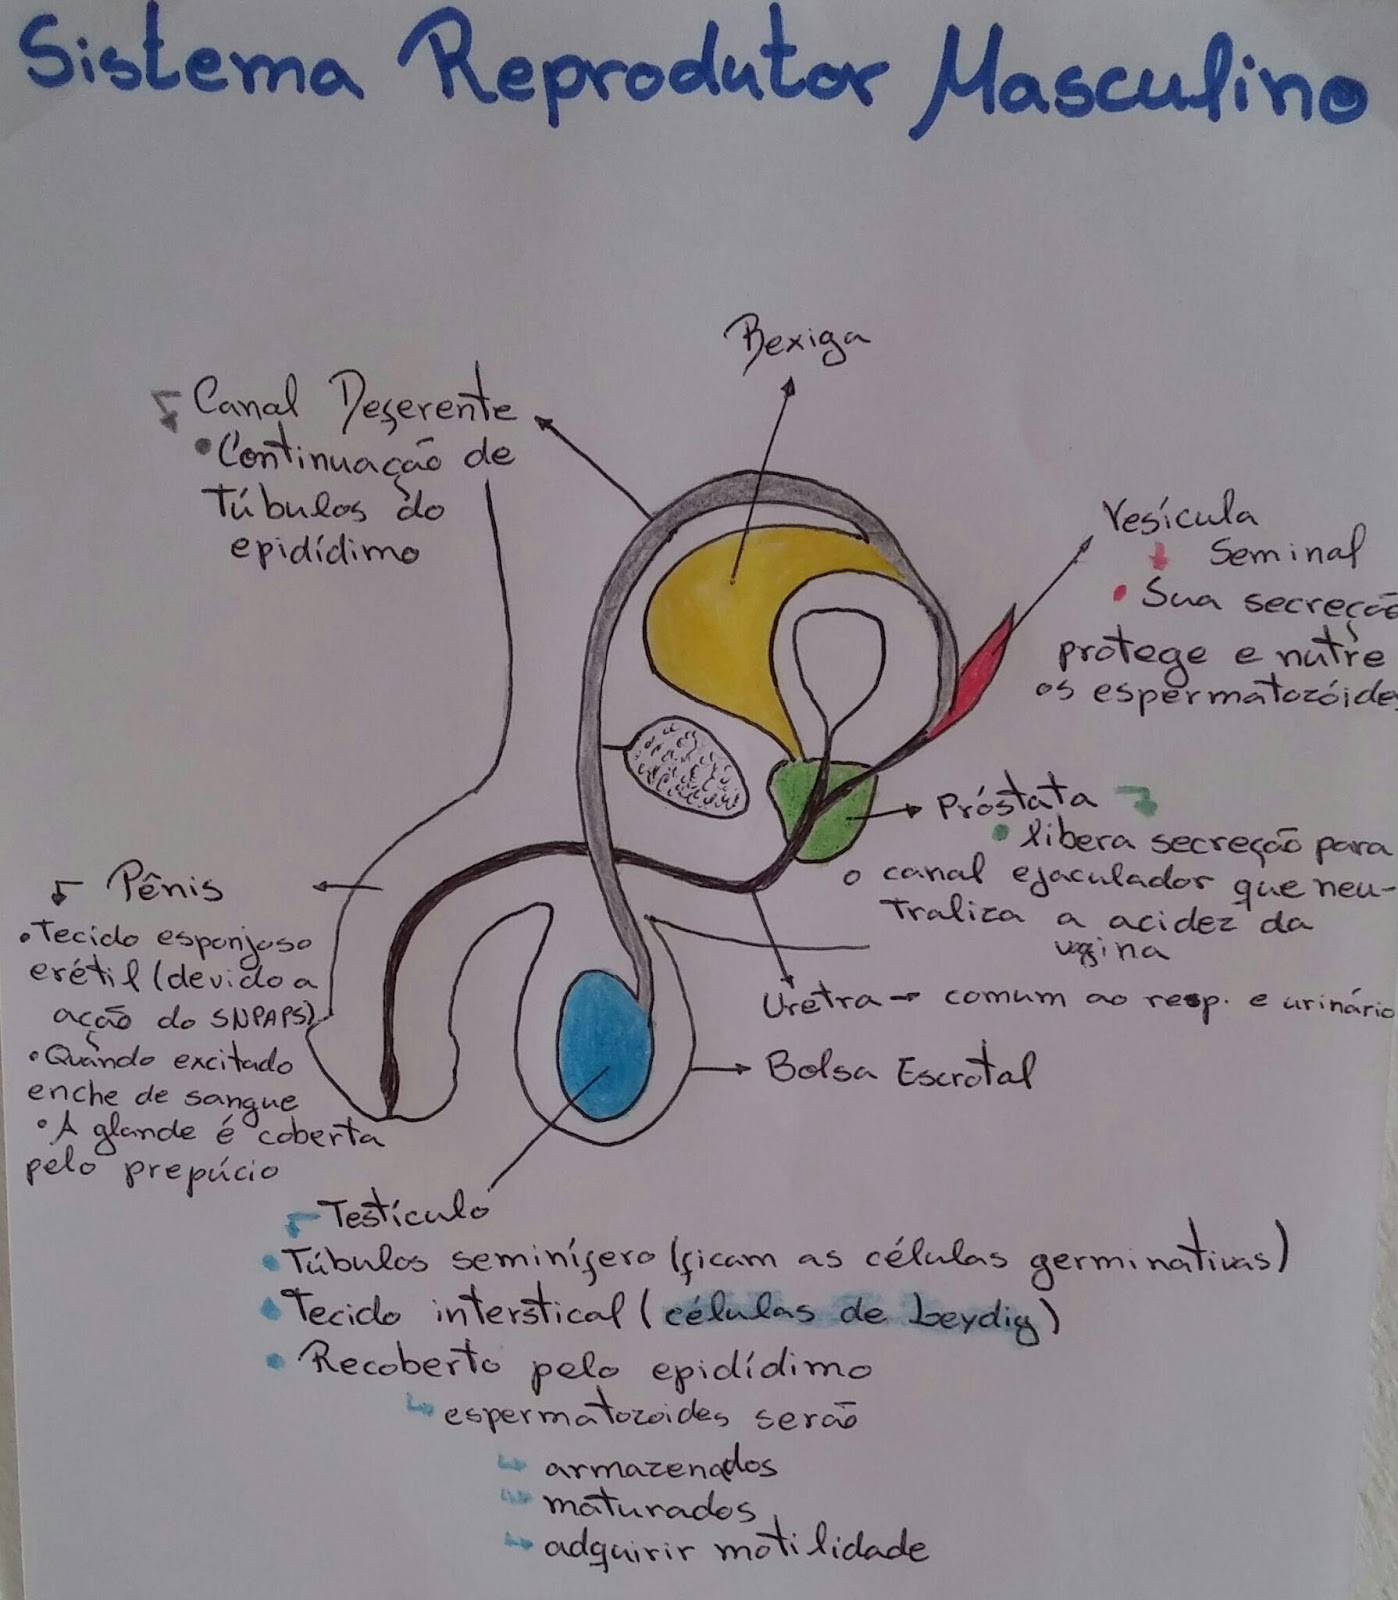 Sistema Reprodutor Masculino
Bexiga
Canal Deferente
• Continuação de
túbulos do
epidídimo
Vesícula
Seminal
• Sua secreção
protege e nutre
os espermatozóides
Próstata
• libera secreção para
o canal ejaculador que neu-
traliza a acidez da
vagina
Pênis
• Tecido esponjoso
erétil (devido a
ação do SNPAPS)
• Quando excitado
enche de sangue
• A glande é coberta
pelo prepúcio
Uretra → comum ao resp. e urinário
Bolsa Escrotal
Testículo
• Túbulos seminífero (ficam as células germinativas)
• Tecido interstical (células de Leydig)
• Recoberto pelo epidídimo
↳ espermatozoides serão
↳ armazenados
↳ maturados
↳ adquirir motilidade